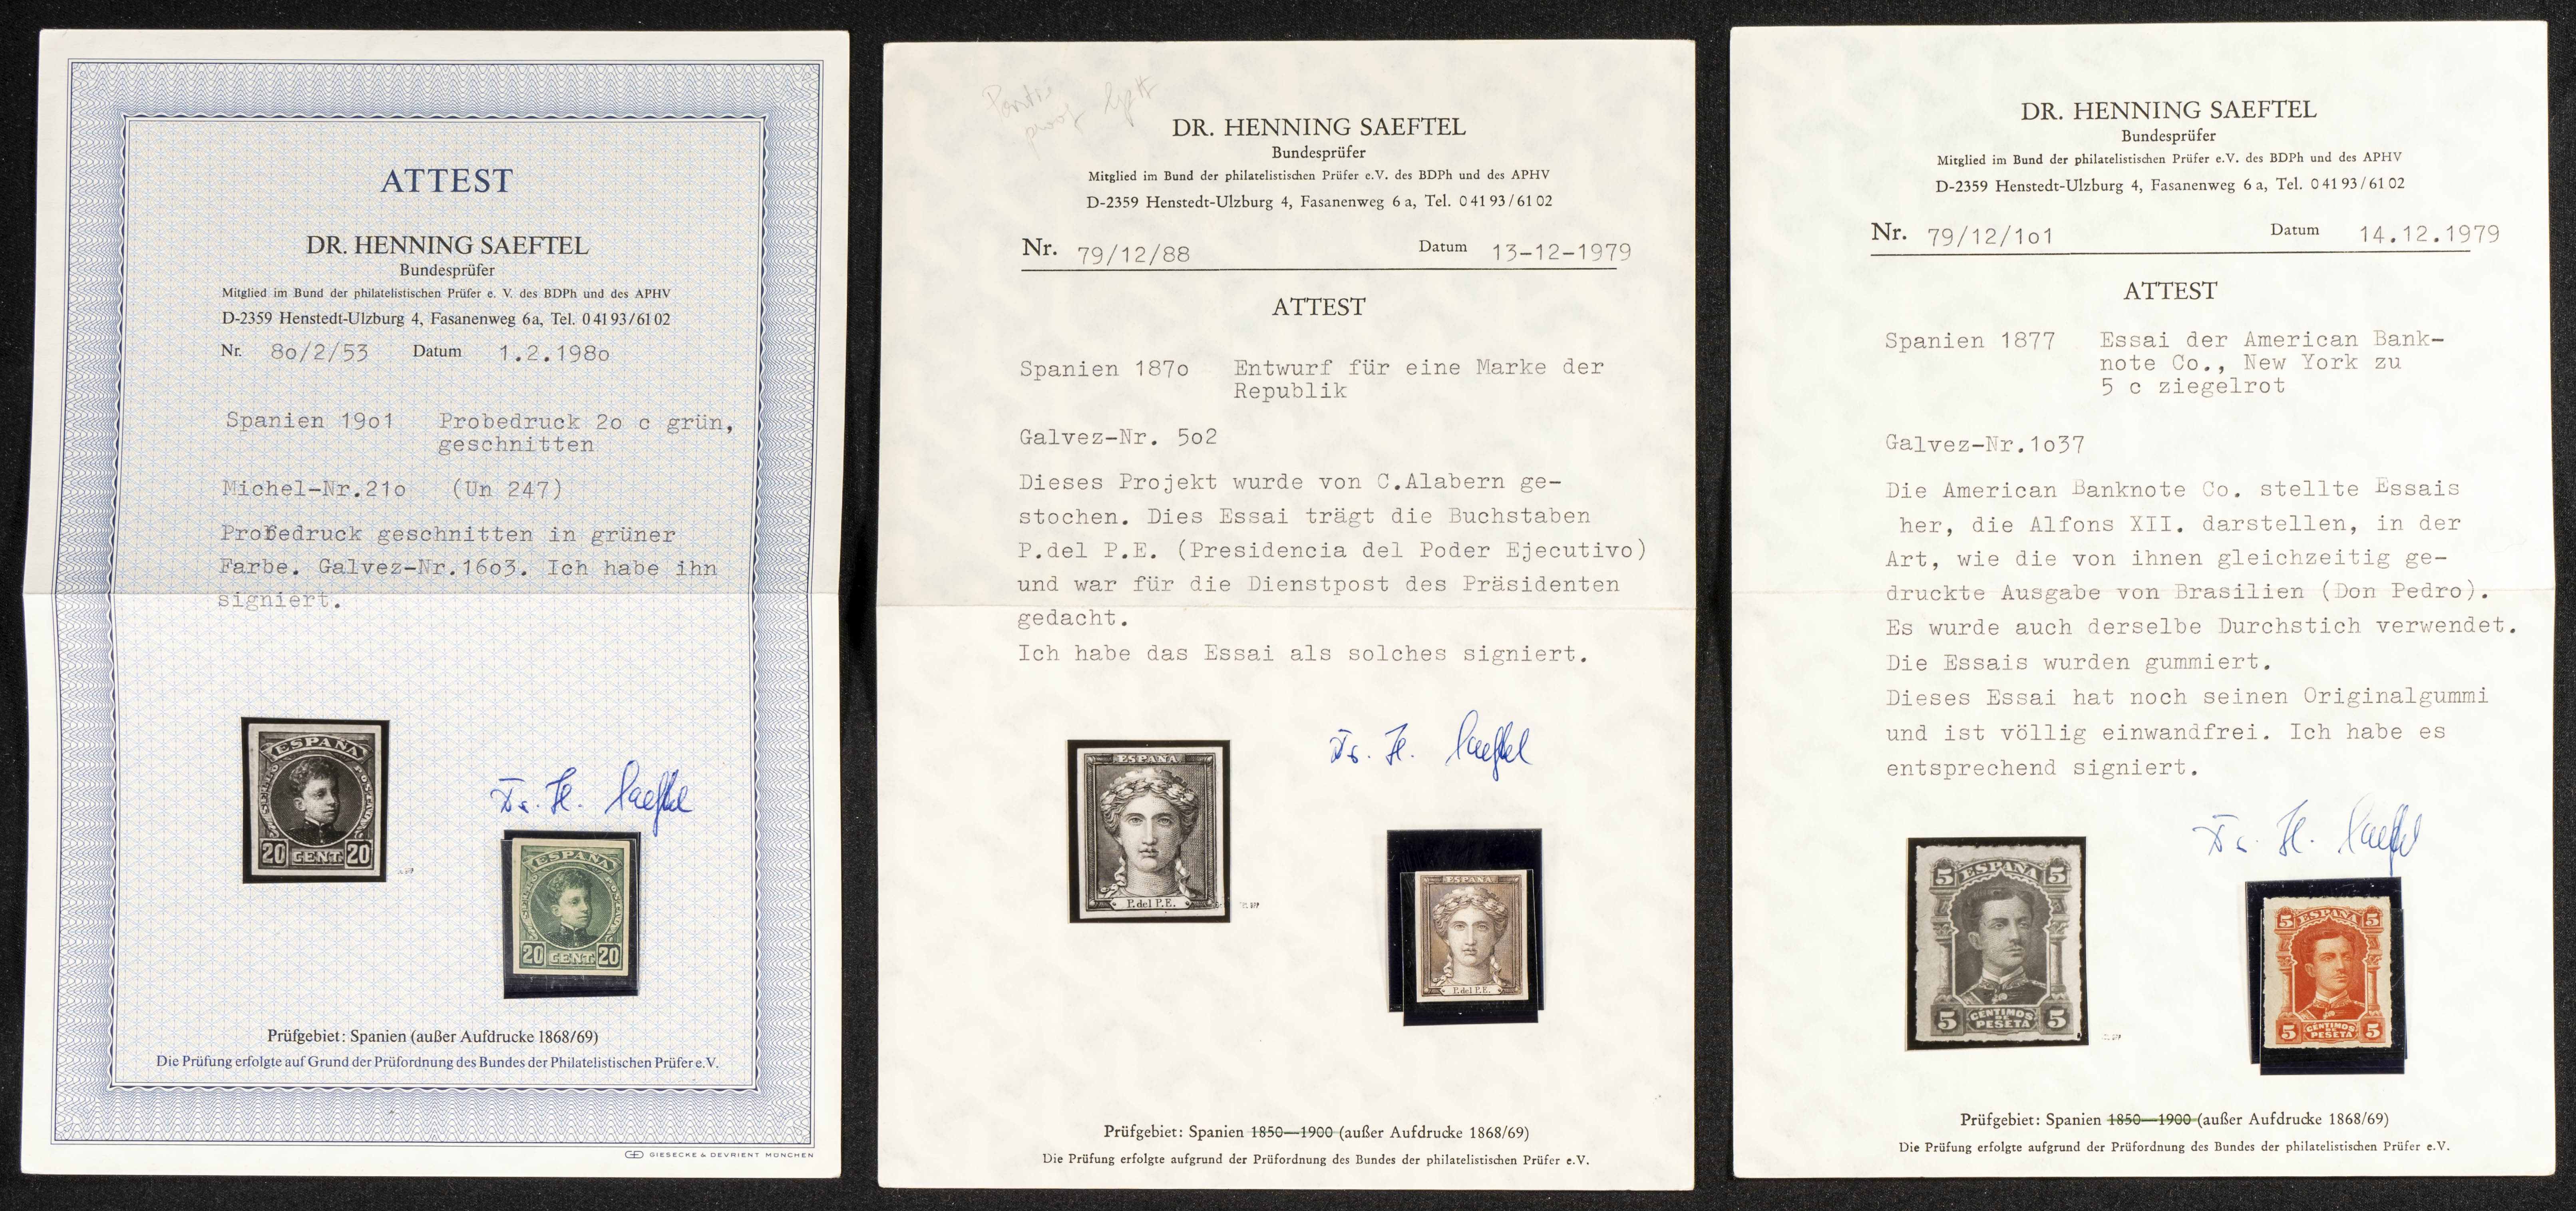 ATTEST
DR. HENNING SAEFTEL
Bundesprüfer
Mitglied im Bund der philatelistischen Prüfer e. V. des BDPh und des APHV
D-2359 Henstedt-Ulzburg 4, Fasanenweg 6a, Tel. 0 41 93/61 02
Nr. 8o/2/53 Datum 1.2.198o
Spanien 19o1 Probedruck 2o c grün,
geschnitten
Michel-Nr.21o (Un 247)
Probedruck geschnitten in grüner
Farbe. Galvez-Nr.16o3. Ich habe ihn
signiert.
ESPAÑA
20 CENT. 20
Dr. H. Saeftel
ESPAÑA
20 CENT. 20
Prüfgebiet: Spanien (außer Aufdrucke 1868/69)
Die Prüfung erfolgte auf Grund der Prüfordnung des Bundes der Philatelistischen Prüfer e.V.
GIESECKE & DEVRIENT MÜNCHEN
proof
DR. HENNING SAEFTEL
Bundesprüfer
Mitglied im Bund der philatelistischen Prüfer e.V. des BDPh und des APHV
D-2359 Henstedt-Ulzburg 4, Fasanenweg 6 a, Tel. 0 41 93 / 61 02
Nr. 79/12/88 Datum 13-12-1979
ATTEST
Spanien 187o Entwurf für eine Marke der
Republik
Galvez-Nr. 5o2
Dieses Projekt wurde von C.Alabern ge-
stochen. Dies Essai trägt die Buchstaben
P.del P.E. (Presidencia del Poder Ejecutivo)
und war für die Dienstpost des Präsidenten
gedacht.
Ich habe das Essai als solches signiert.
ESPAÑA
P. del P.E.
Dr. H. Saeftel
ESPAÑA
P. del P.E.
Prüfgebiet: Spanien 1850—1900 (außer Aufdrucke 1868/69)
Die Prüfung erfolgte aufgrund der Prüfordnung des Bundes der philatelistischen Prüfer e.V.
DR. HENNING SAEFTEL
Bundesprüfer
Mitglied im Bund der philatelistischen Prüfer e.V. des BDPh und des APHV
D-2359 Henstedt-Ulzburg 4, Fasanenweg 6 a, Tel. 0 41 93 / 61 02
Nr. 79/12/1o1 Datum 14.12.1979
ATTEST
Spanien 1877 Essai der American Bank-
note Co., New York zu
5 c ziegelrot
Galvez-Nr.1o37
Die American Banknote Co. stellte Essais
her, die Alfons XII. darstellen, in der
Art, wie die von ihnen gleichzeitig ge-
druckte Ausgabe von Brasilien (Don Pedro).
Es wurde auch derselbe Durchstich verwendet.
Die Essais wurden gummiert.
Dieses Essai hat noch seinen Originalgummi
und ist völlig einwandfrei. Ich habe es
entsprechend signiert.
5 ESPAÑA 5
5 CENTIMOS DE PESETA 5
Dr. H. Saeftel
5 ESPAÑA 5
5 CENTIMOS DE PESETA 5
Prüfgebiet: Spanien 1850—1900 (außer Aufdrucke 1868/69)
Die Prüfung erfolgte aufgrund der Prüfordnung des Bundes der philatelistischen Prüfer e.V.